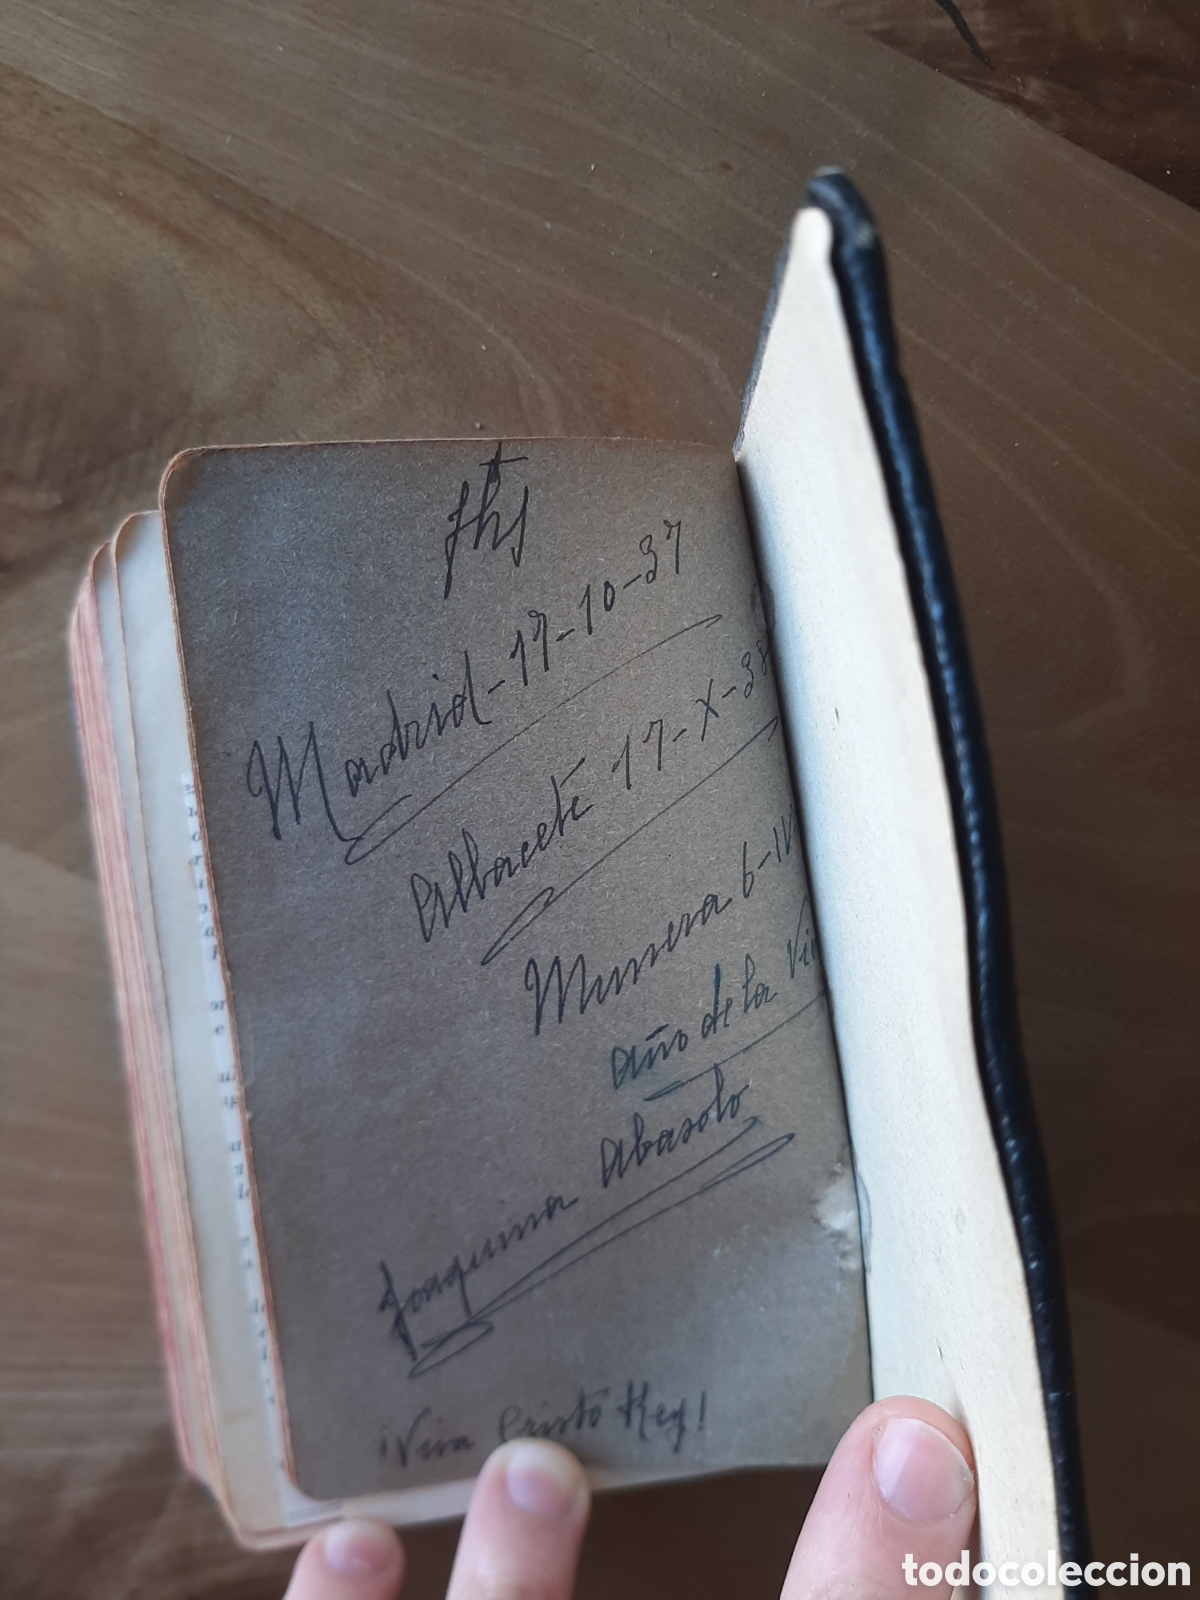 Jhs
Madrid-17-10-37
Albacete 17-X-38
Munera 6-IV
año de la Vi
Joaquina Abasolo
¡Viva Cristo Rey!
todocoleccion